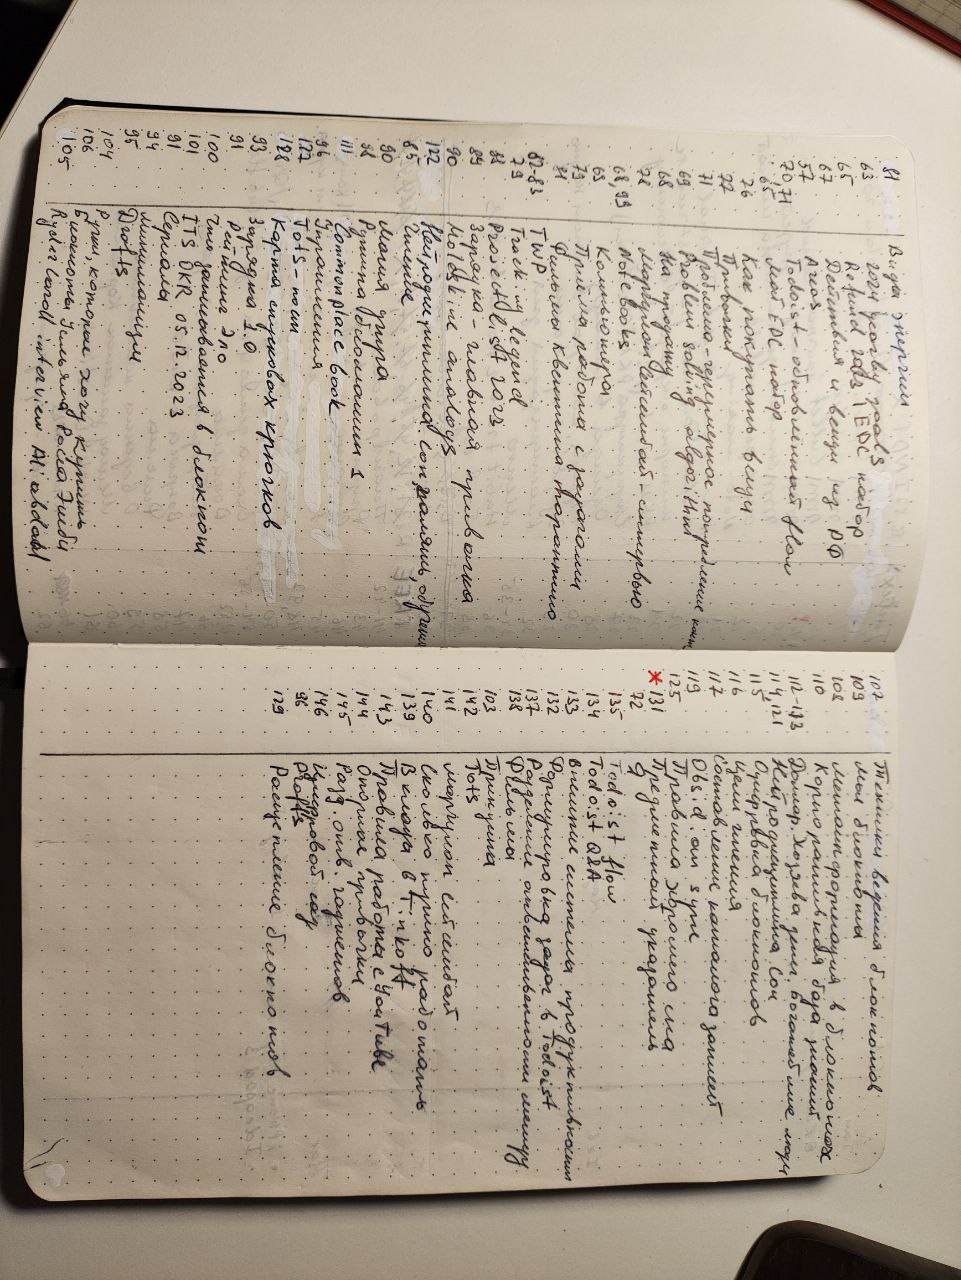 81 Виды энергии
63 2024 yearby goals
65 Refund 2023 | EDC набор
67 Действия и вещи из РФ
57 Areas
70,71 Todoist - обновленный flow
65 Мой EDC набор
76 Как покупать вещи
77 Привычки
71 Проблема - черезмерное потребление конт
69 Problem solving algorithm
68 На продажу
78 Маргулан Сейсембай - интервью
68,99 Notebooks
69 Компьютеры
79 Приёмы работы с задачами
81 Фильмы Квентина тарантино
82-83 TWP
79 Tracking legend
88 Project list 2023
89 Зарядка - главная привычка
90 Moleskine analogs
122 Нейродисциплина. Сон, память, обучение
85 Чтение
90 Магия утра
92 Рутина биомашины 1
111 Commonplace book
96 Упражнения
127 Tots - поты
128 Карта спусковых крючков
93 Зарядка 1.0
91 Рейтинг Эло
100 Что записывается в блокнот
101 ITS OKR 05.12.2023
91 Сериалы
94 Минимализм
95 Drafts
104 Ручки, которые хочу купить
106 Блокноты Уильяма Росса Эшби
105 Ryder Caroll interview Ali abdaal
107 Техники ведения блокнотов
109 Мои блокноты
108 Метаинформация в блокнотах
110 Корпоративная база знаний
112-113 Доллар. Хозяева денег. Богатейшие люди
114,121 Нейродисциплина Сон
115 Оцифровка блокнотов
116 Цели чтения
117 Составление каталога записей
119 Obsidian sync
125 Правила хорошего сна
* 131 Предметный указатель
72 Я
135 Todoist flow
134 Todoist Q&A
133 Внешние системы продуктивности
132 Формулировка задач в Todoist
137 Разделение ответственности между
138 Фильмы
103 Принципы
142 Tots
141 Маргулан сейсембай
140 Сколько нужно работать
139 Вклады в Tinkoff
143 Правила работы с YouTube
144 Опорные привычки
145 Разд. отв. гаджетов
146 Цифровой сад
96 Drafts
129 Расщепление блокнотов